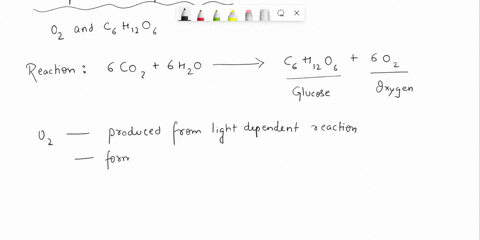 O₂ and C₆H₁₂O₆
Reaction : 6CO₂ + 6H₂O ⟶ C₆H₁₂O₆ + 6O₂
Glucose Oxygen
O₂ — produced from light dependent reaction
— form